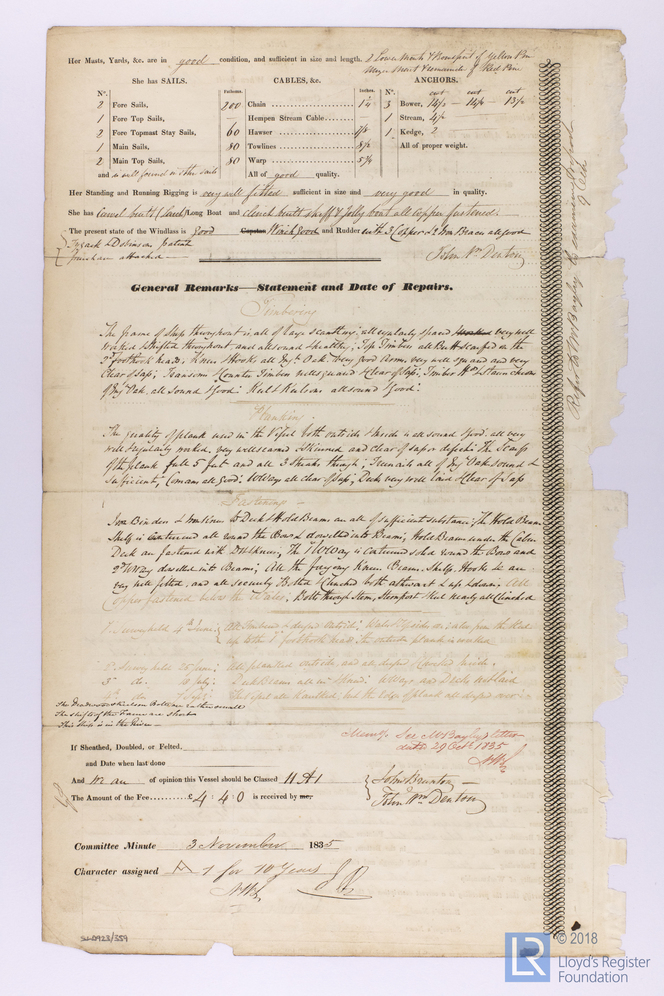 Her Masts, Yards, &c. are in good condition, and sufficient in size and length. 3 Lower Masts & Bowsprit of Yellow Pine
Mizen Mast & remainder of Red Pine
She has SAILS.
CABLES, &c.
ANCHORS.
N°.
Fathoms.
Inches.
N°.
cwt cwt cwt
2 Fore Sails, 200 Chain 1¼ 3 Bower, 14½ - 14½ - 13½
1 Fore Top Sails, - Hempen Stream Cable - 1 Stream, 4½
2 Fore Topmast Stay Sails, 60 Hawser 7½ 1 Kedge, 2
1 Main Sails, 80 Towlines 8½ All of proper weight.
2 Main Top Sails, 80 Warp 5¾
and is well found in other sails All of good quality.
Her Standing and Running Rigging is very well fitted sufficient in size and very good in quality.
She has Carvel built (Card) Long Boat and clench built skiff & Jolly boat all copper fastened.
The present state of the Windlass is good Capstan Winch good and Rudder with 3 Copper & 2 Braces all good
Tyzack & Dobinson patent
Purchase attached
John Wm Denton
General Remarks—Statement and Date of Repairs.
Timbering
The frame of Ship throughout is all of large scantling; all regularly spaced very well
worked & shifted throughout and all sound & healthy; Top Timbers all Butt & scarfed on the
3d foothook heads, Knees Hooks all Eng Oak very good Arms, very well squared and very
clear of sap; Transoms & Counter Timbers well squared & clear of sap; Timber
of Eng Oak all sound & good: Keel & Keelsons all sound & good:
Planking
The quality of plank used in the Vessel both outside & Inside is all sound & good. all very
well & regularly worked, very well seamed & skinned and clear of sap or defects. The Scarfs
of the plank full 5 feet and all 3 Strakes through; Treenails all of Eng Oak sound &
sufficient; Comans all good; W.Ways all clear of sap; Deck very well laid & clear of Sap
Fastenings
Iron Binders & Iron Knees to Deck & Hold Beams are all of sufficient substance: The Hold Beam
Shelf is continued all round the Bow & dowelled into Beams; Hold Beams under the Cabin
Deck are fastened with Knees; The W.Way is continued solid round the Bows and
2d W.Way dowelled into Beams; All the foregoing Knees Beams, Shelfs, Hooks &c are
very well fitted, and all securely Bolted & Clinched both athwart & up & down. All
Copper fastened below the Wales; Bolts through Stem, Sternpost & Keel nearly all Clinched
1st Survey held 4th June; All Timbered & dressed outside;
up to the 1st foothook heads the outside plank is worked
2d Survey held 25 June; All planked outside, and all dressed & caulked Inside.
3d do. 10 July; Deck Beams all in & spaced; W.Ways and Decks not laid
4th do. 7 Sept; This vessel all Caulked, but the edge of plank all dressed over
The Deadwood & Keelson Bolts are rather small
The shifts of the Frame are short
This Ship is in the River
Memo, See Mr Bayley's letter
dated 29 Octr 1835
If Sheathed, Doubled, or Felted.
and Date when last done
And We are of opinion this Vessel should be Classed 11 A 1
The Amount of the Fee £ 4 : 4 : 0 is received by me,
John Brunton
John Wm Denton
Committee Minute 3 November 1835
Character assigned A 1 for 10 Years
SLD923/359
© 2018
LR
Lloyd's Register
Foundation